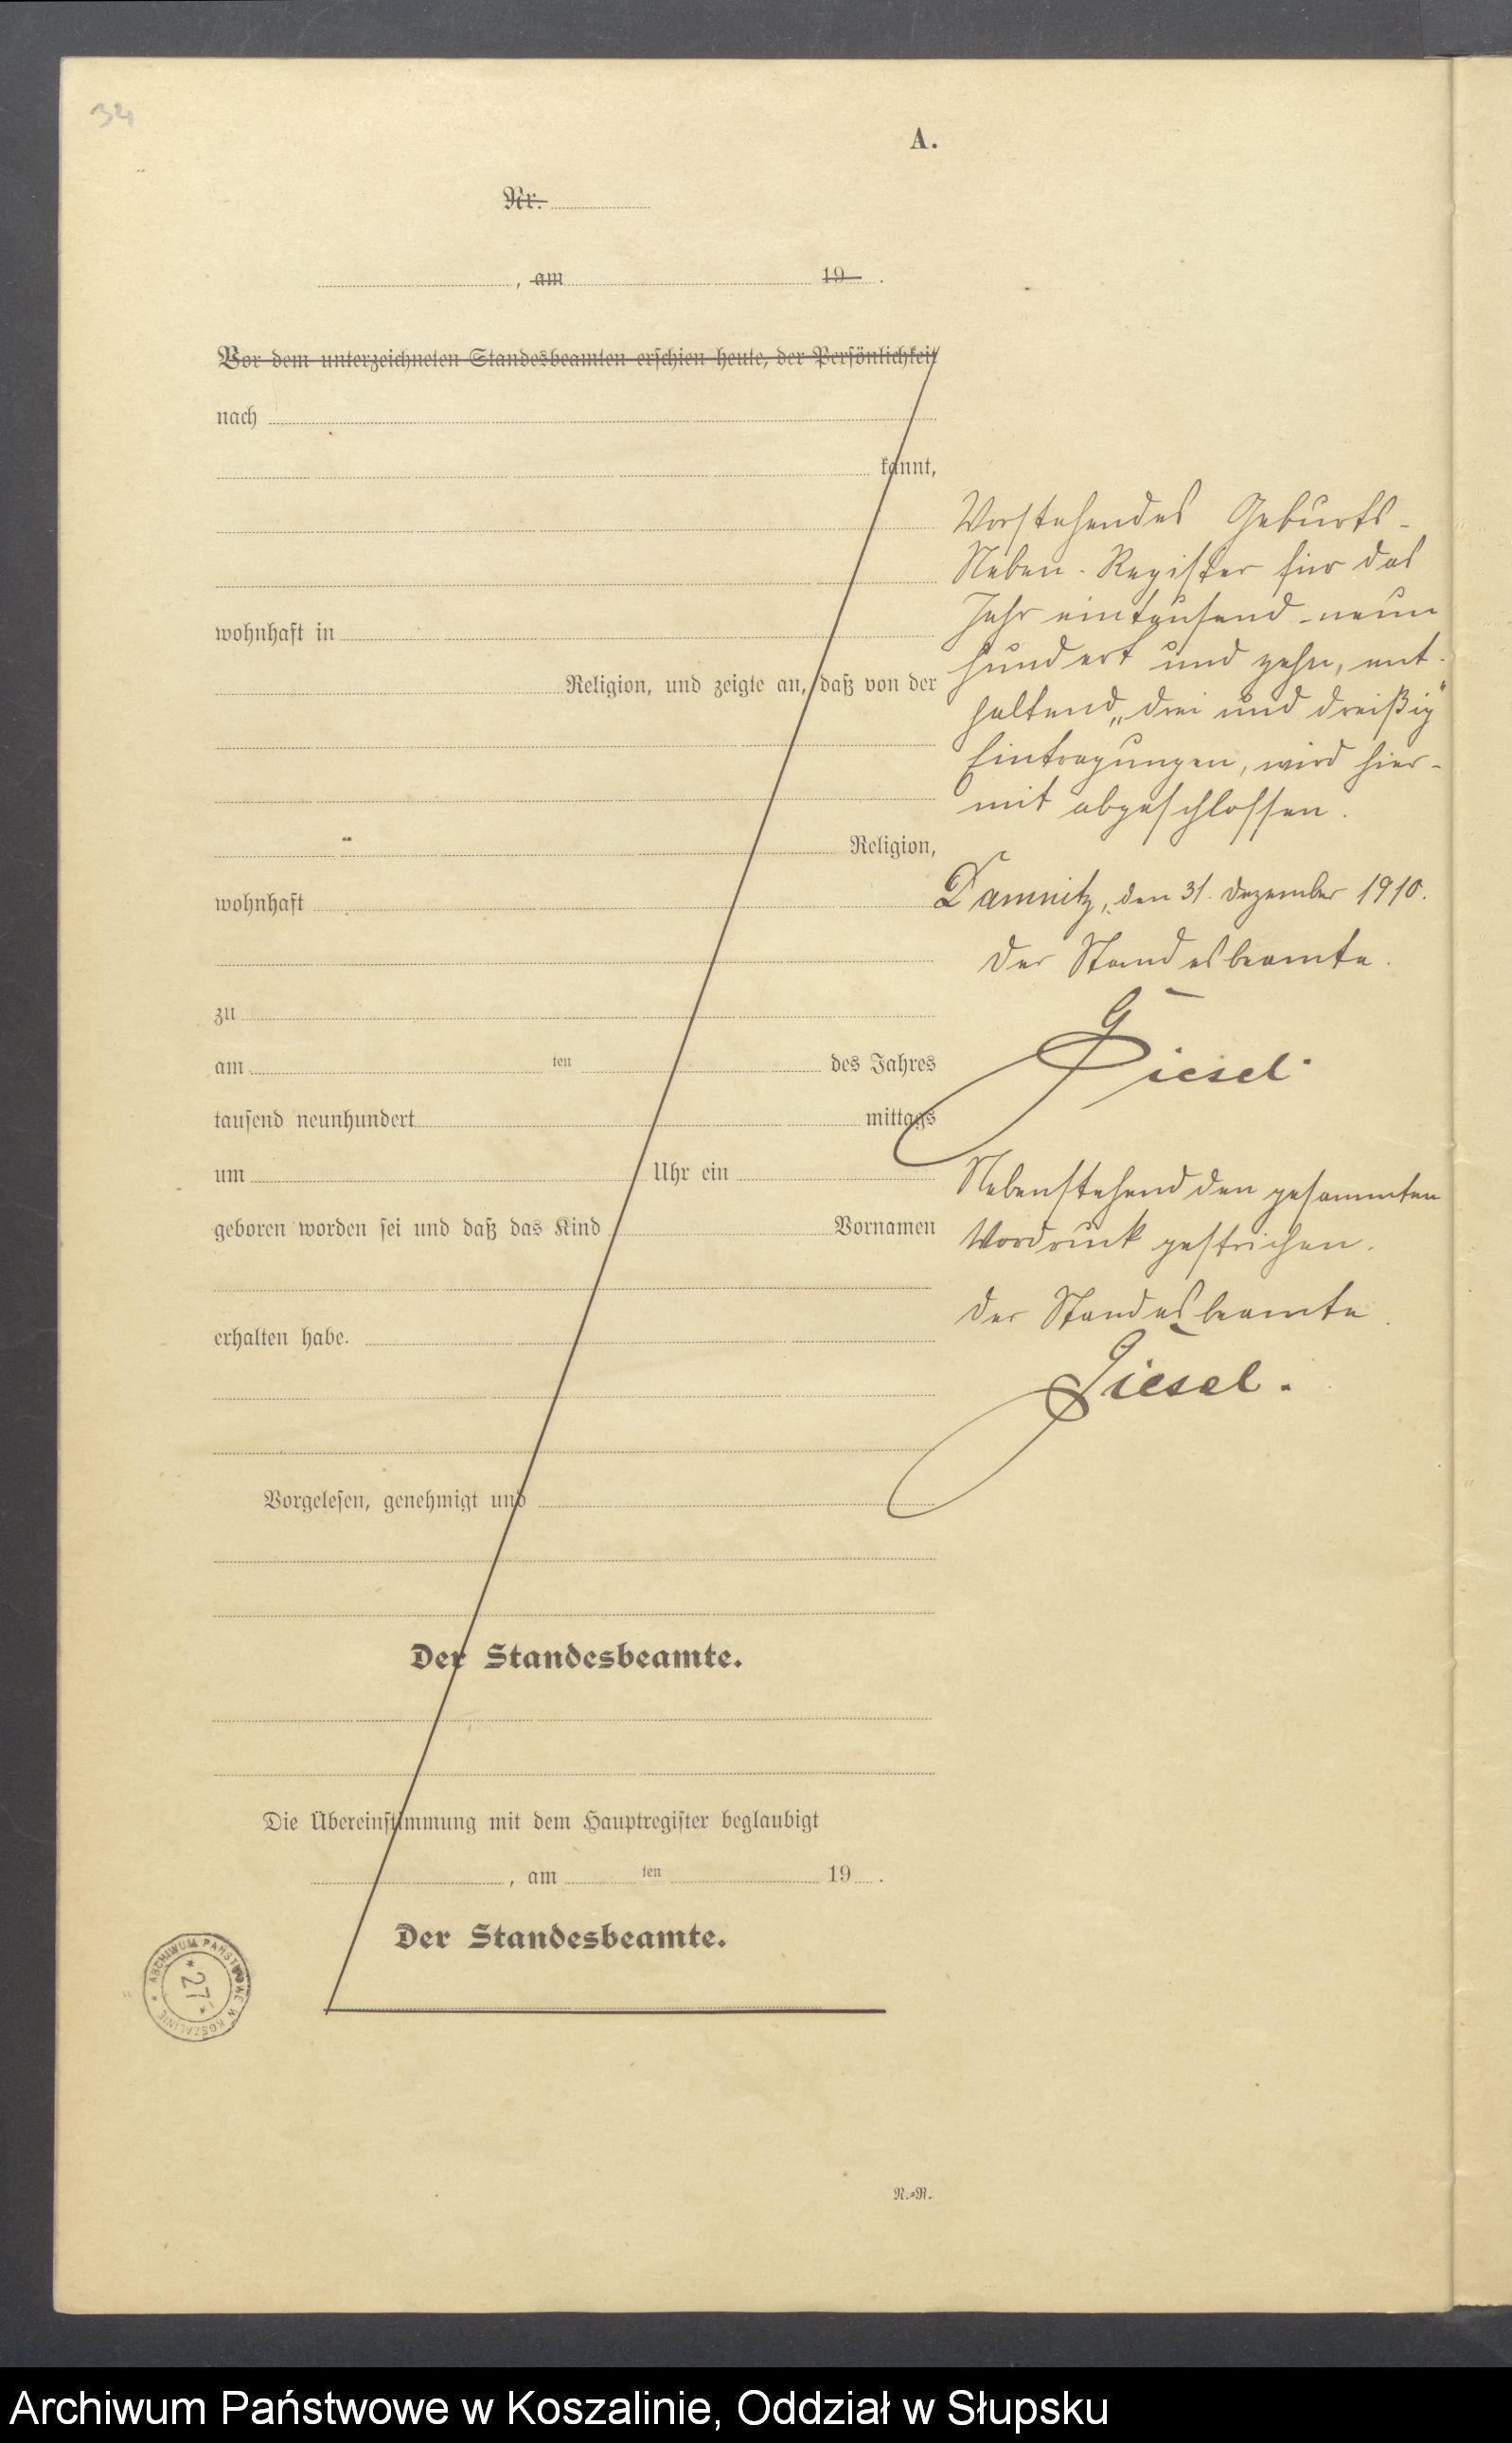 34
A.
Nr.
, am 19 .
Vor dem unterzeichneten Standesbeamten erschien heute, der Persönlichkeit
nach
kannt,
wohnhaft in
Religion, und zeigte an, daß von der
Religion,
wohnhaft
zu
am ten des Jahres
tausend neunhundert mittags
um Uhr ein
geboren worden sei und daß das Kind Vornamen
erhalten habe.
Vorgelesen, genehmigt und
Der Standesbeamte.
Die Übereinstimmung mit dem Hauptregister beglaubigt
, am ten 19 .
Der Standesbeamte.
Vorstehendes Geburts-
Neben-Register für das
Jahr eintausend-neun
hundert und zehn, ent-
haltend „drei und dreißig"
Eintragungen, wird hier-
mit abgeschlossen.
Damnitz, den 31. Dezember 1910.
Der Standesbeamte.
Giesel.
Nebenstehend den gesammten
Vordruck gestrichen.
Der Standesbeamte.
Giesel.
ARCHIWUM PAŃSTWOWE W KOSZALINIE
*27*
N.=R.
Archiwum Państwowe w Koszalinie, Oddział w Słupsku